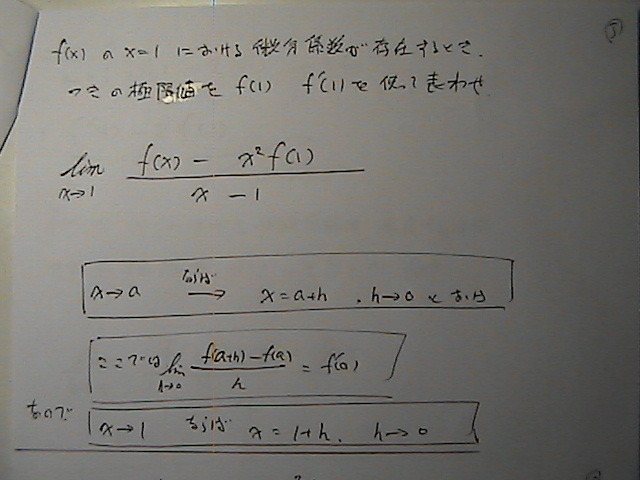 ⑤
f(x) の x=1 における微分係数が存在するとき、
つぎの極限値を f(1) f'(1)を使って表わせ
lim x→1 (f(x) − x²f(1)) / (x − 1)
x→a ならば → x=a+h , h→0 とおけば
ここでは lim h→0 (f(a+h)−f(a)) / h = f'(a)
なので x→1 ならば x = 1+h. h→0